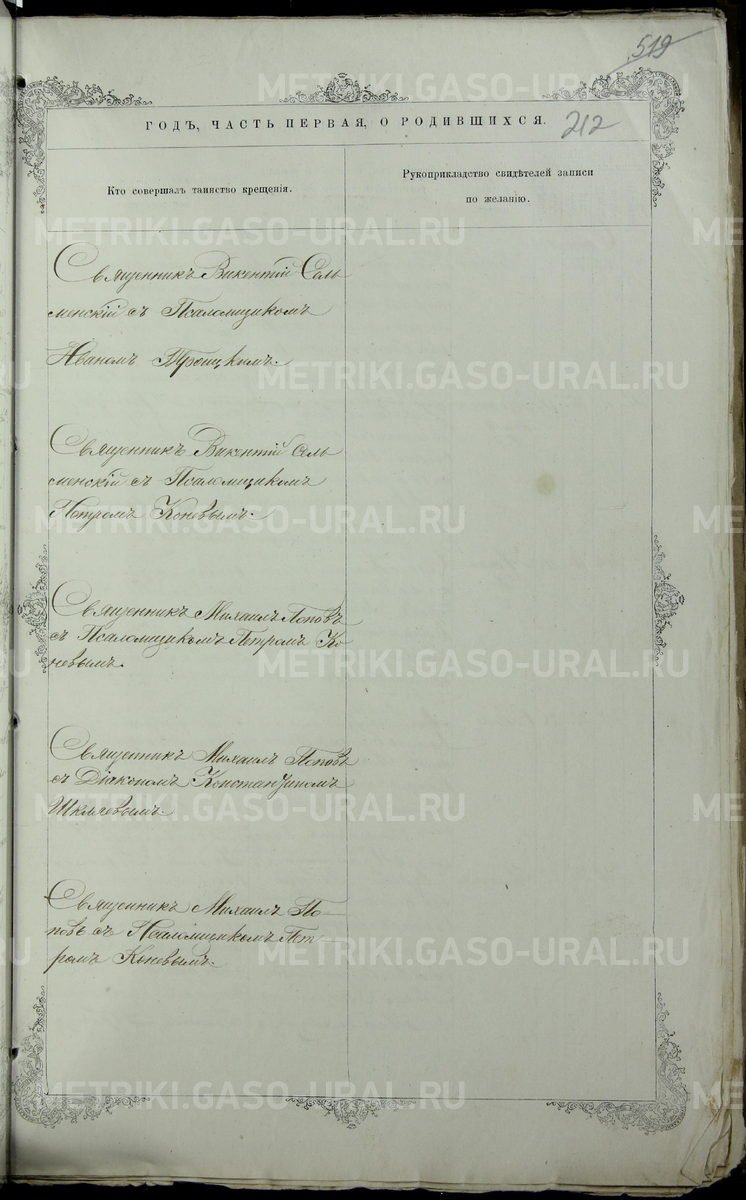 519
ГОДЪ, ЧАСТЬ ПЕРВАЯ, О РОДИВШИХСЯ.
212
Кто совершалъ таинство крещенія.
Рукоприкладство свидѣтелей записи
по желанію.
Священникъ Викентій Сель
менскій съ Псаломщикомъ
Иваномъ Троицкимъ.
Священникъ Викентій Сель
менскій съ Псаломщикомъ
Петромъ Коневымъ.
Священникъ Михаилъ Поповъ
съ Псаломщикомъ Петромъ Ко
невымъ.
Священникъ Михаилъ Поповъ
съ Діакономъ Константиномъ
Шкляевымъ.
Священникъ Михаилъ По-
повъ съ Псаломщикомъ Пет-
ромъ Коневымъ.
METRIKI.GASO-URAL.RU